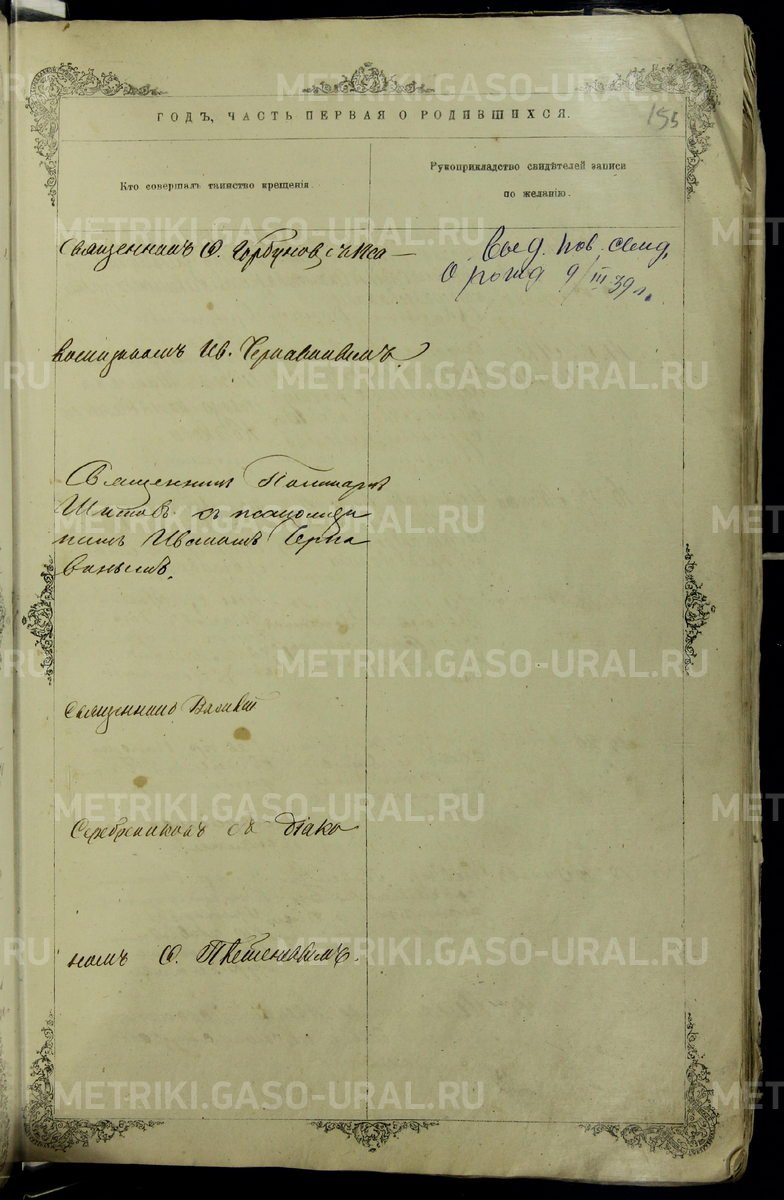 ГОДЪ, ЧАСТЬ ПЕРВАЯ О РОДИВШИХСЯ.
155
Кто совершалъ таинство крещенія.
Рукоприкладство свидѣтелей записи
по желанію.
Священникъ Ѳ. Горбунов съ пса-
Выд. пов. свид.
о рожд 9/III 39 г.
ломщикомъ Ив. Чернавинымъ.
Священникъ
Шитовъ съ псаломщи
комъ Иваномъ Черна
винымъ.
Священникъ Василій
Серебренниковъ съ діако
номъ Ѳ.
METRIKI.GASO-URAL.RU